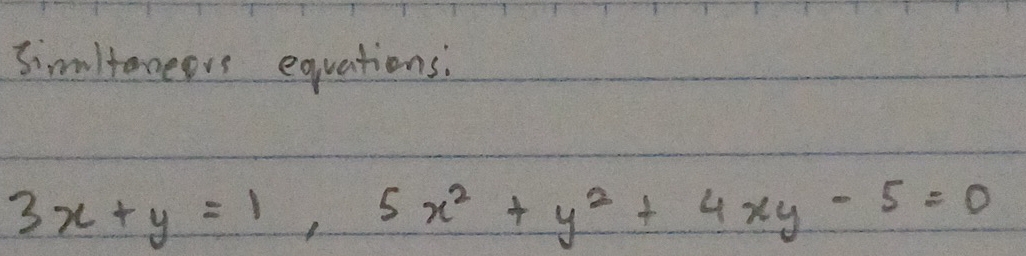 Simultaneous equations:
3x + y = 1 , 5x² + y² + 4xy - 5 = 0